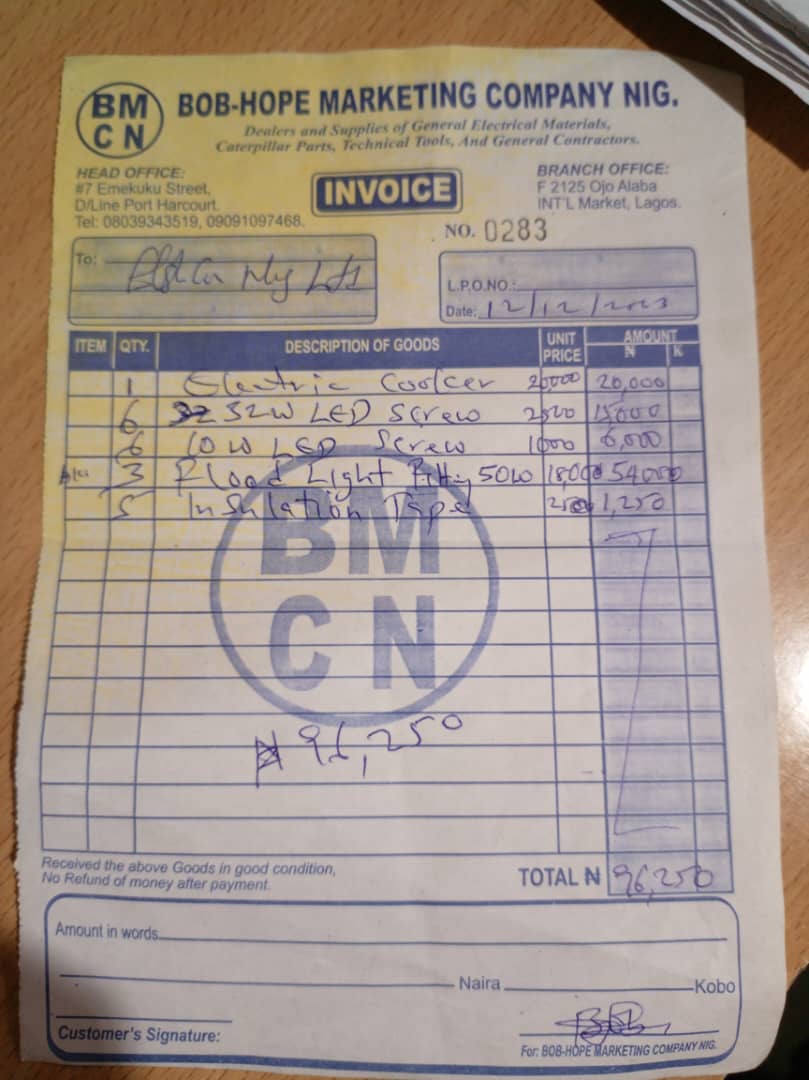 BM
CN
BOB-HOPE MARKETING COMPANY NIG.
Dealers and Supplies of General Electrical Materials,
Caterpillar Parts, Technical Tools, And General Contractors.
HEAD OFFICE:
#7 Emekuku Street,
D/Line Port Harcourt.
Tel: 08039343519, 09091097468.
INVOICE
BRANCH OFFICE:
F 2125 Ojo Alaba
INT'L Market, Lagos.
NO. 0283
To:
L.P.O.NO.:
Date: 12/12/2023
ITEM QTY. DESCRIPTION OF GOODS UNIT PRICE AMOUNT N K
1 Electric Cooker 20000 20,000
6 32W LED Screw 2500 15000
6 10W LED Screw 1000 6,000
3 Flood Light 50W 18000 54000
5 Insulation Tape 250 1,250
BM
CN
₦ 96,250
Received the above Goods in good condition,
No Refund of money after payment.
TOTAL ₦ 96,250
Amount in words
Naira Kobo
Customer's Signature:
For: BOB-HOPE MARKETING COMPANY NIG.